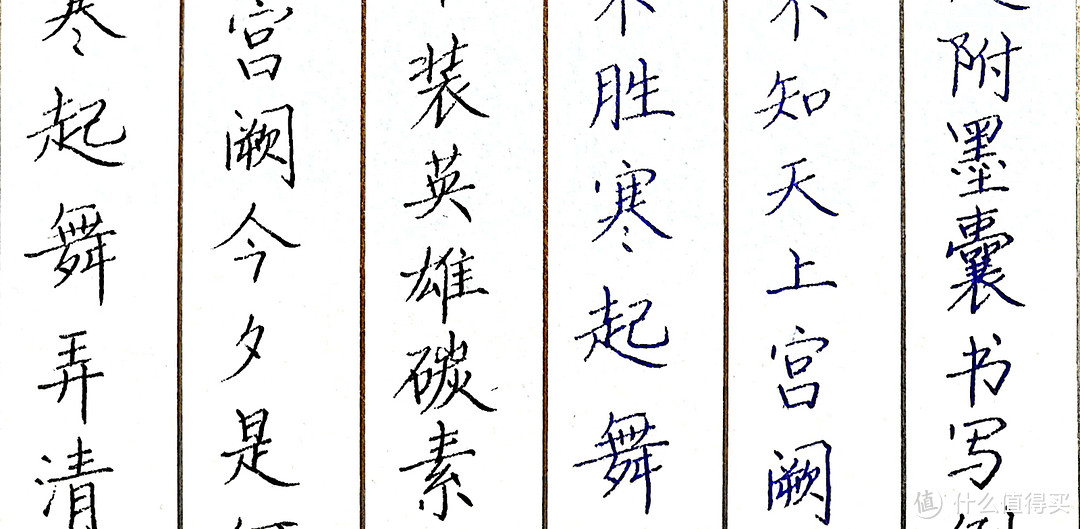 附墨囊书写
不知天上宫阙
不胜寒起舞
装英雄碳素
宫阙今夕是
寒起舞弄清
值 什么值得买